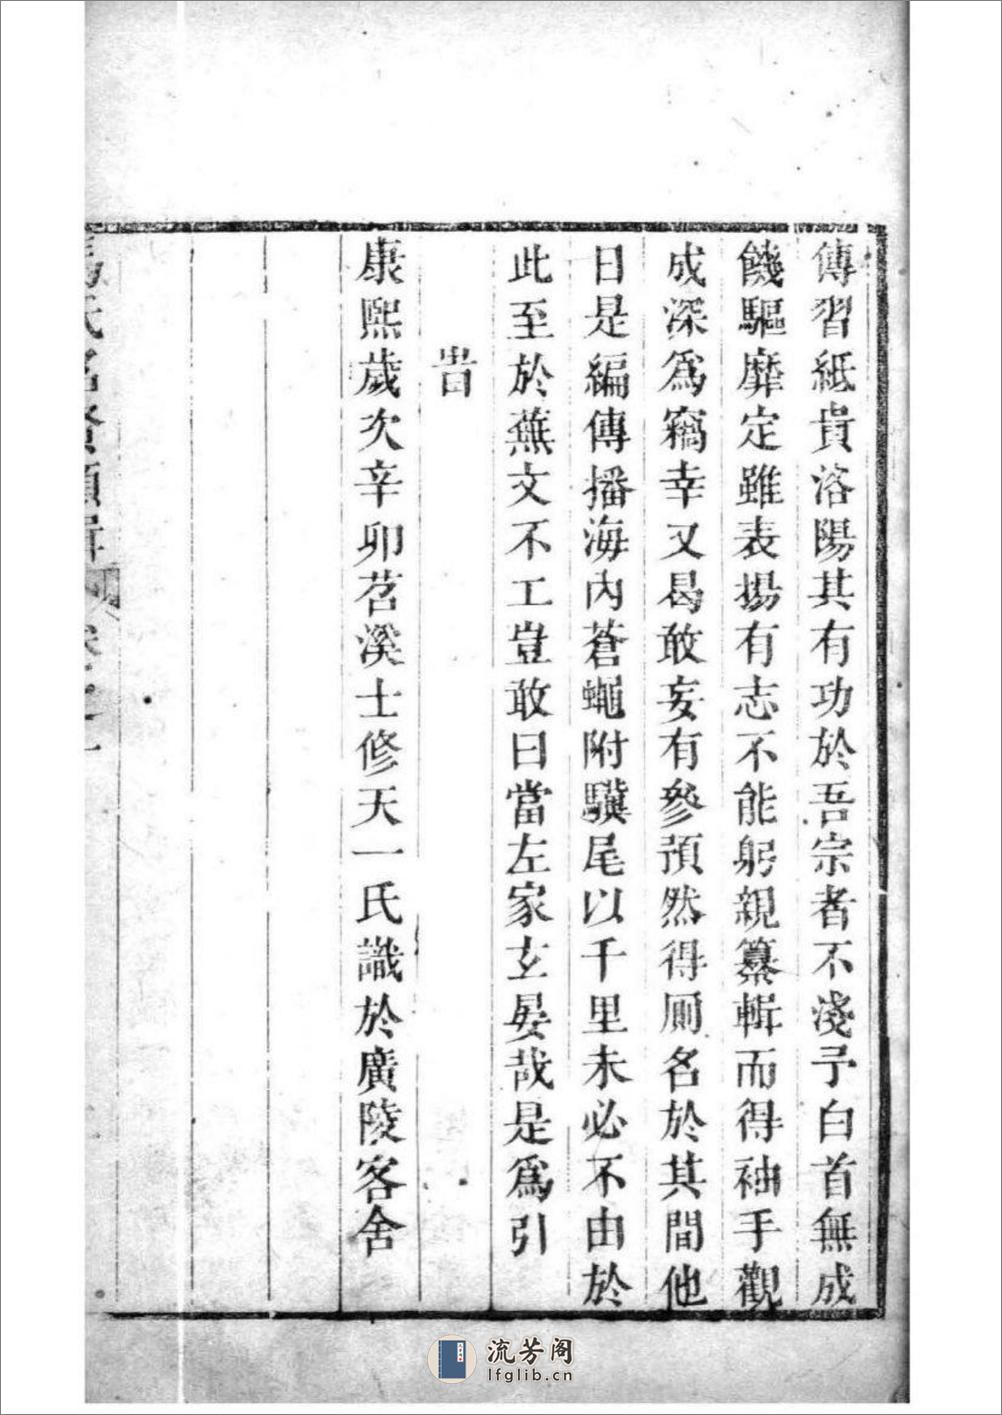 傳習紙貴洛陽其有功於吾宗者不淺予白首無成
饑驅靡定雖表揚有志不能躬親纂輯而得袖手觀
成深爲竊幸又曷敢妄有參預然得厠名於其間他
日是編傳播海內蒼蠅附驥尾以千里未必不由於
此至於蕪文不工豈敢曰當左家玄晏哉是爲引
旹
康熙歲次辛卯苕溪士修天一氏識於廣陵客舍
馬氏名賢類輯
流芳阁
lfglib.cn